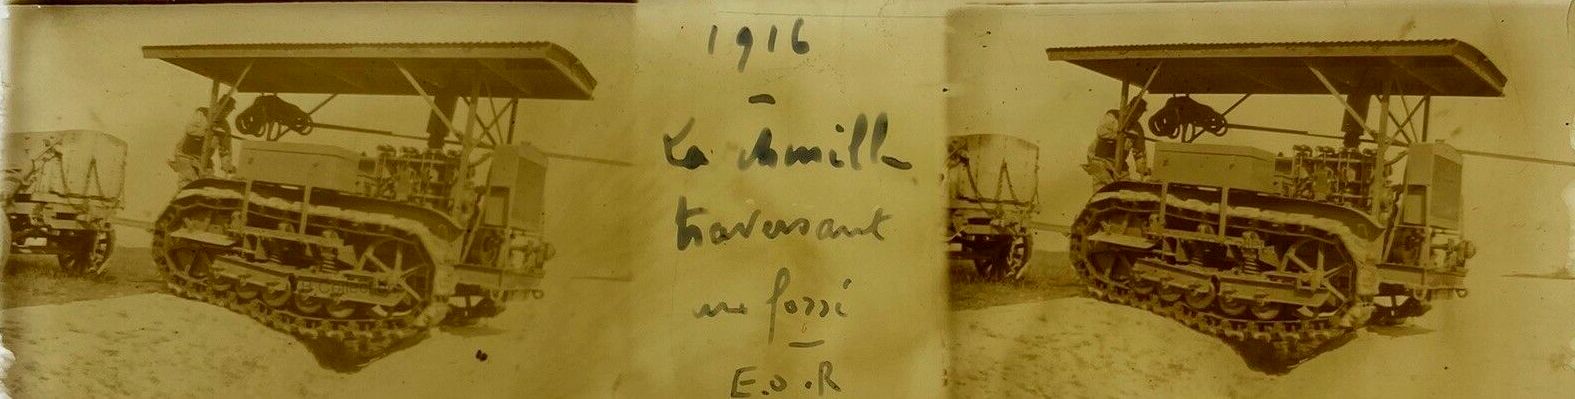 1916
-
La chenille
traversant
un fossé
-
E.O.R